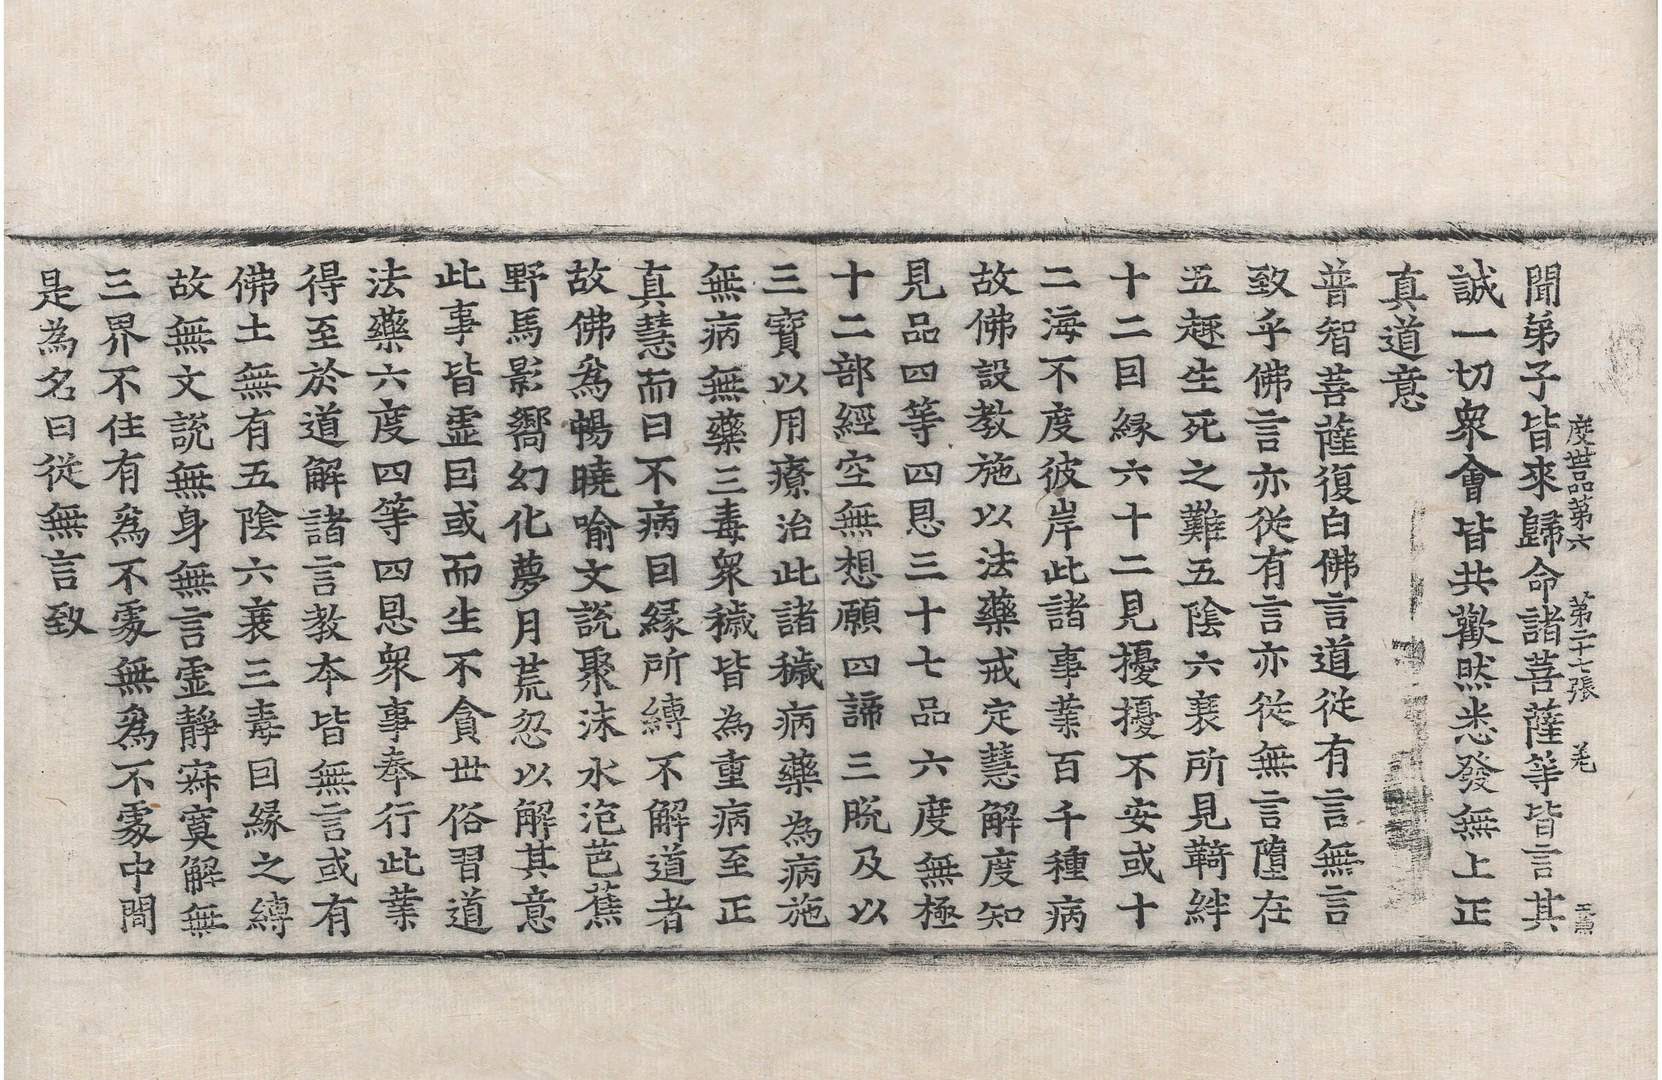 度世品第六　第二十七張　羌
聞弟子皆來歸命諸菩薩等皆言其
誠一切衆會皆共歡然悉發無上正
真道意
普智菩薩復白佛言道從有言無言
致乎佛言亦從有言亦從無言墮在
五趣生死之難五陰六衰所見羇絆
十二因緣六十二見擾擾不安或十
二海不度彼岸此諸事業百千種病
故佛設教施以法藥戒定慧解度知
見品四等四恩三十七品六度無極
十二部經空無想願四諦三脫及以
三寶以用療治此諸穢病藥為病施
無病無藥三毒衆穢皆為重病至正
真慧而曰不病因緣所縛不解道者
故佛爲暢曉喻文說聚沫水泡芭蕉
野馬影嚮幻化夢月荒忽以解其意
此事皆虛因或而生不貪世俗習道
法藥六度四等四恩衆事奉行此業
得至於道解諸言教本皆無言或有
佛土無有五陰六衰三毒因緣之縛
故無文說無身無言虛靜寂寞解無
三界不住有爲不處無爲不處中間
是為名曰從無言致